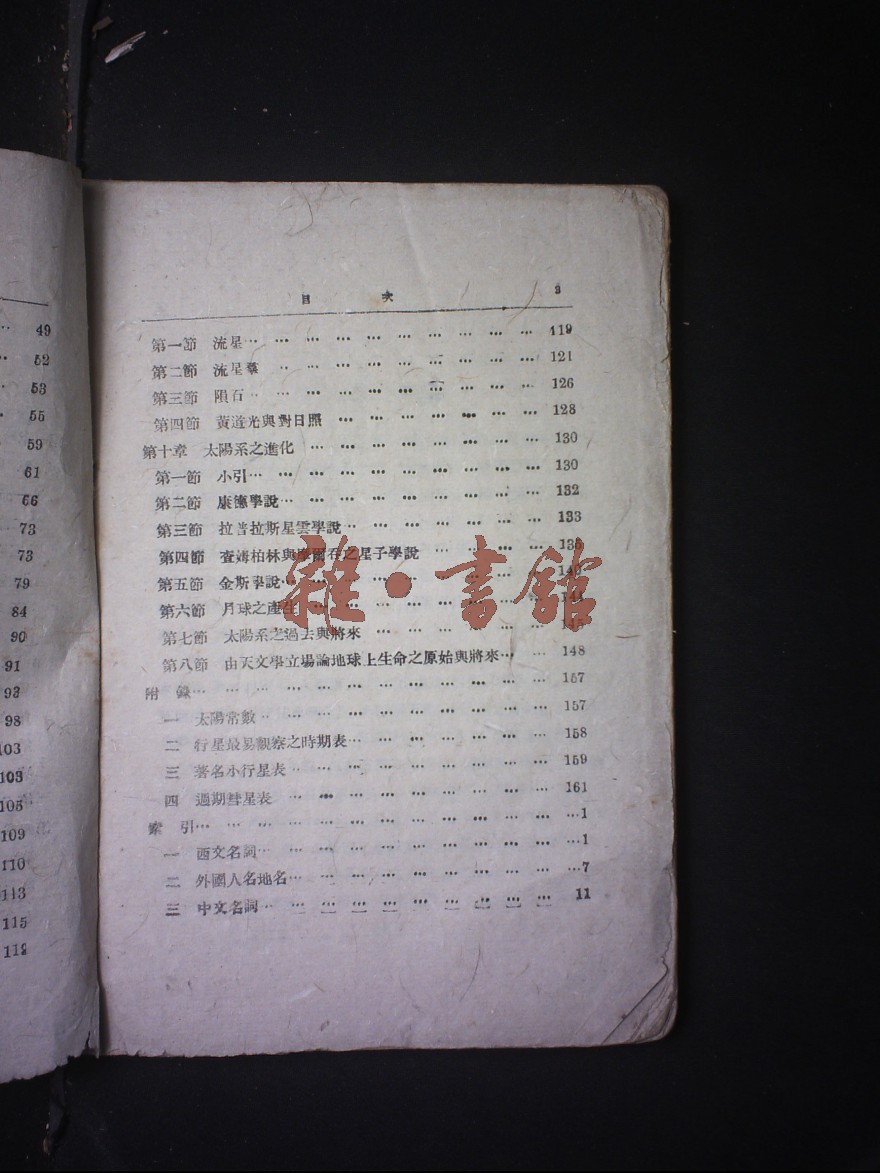 49
52
53
55
59
61
66
73
73
79
84
90
91
93
98
103
103
105
109
110
113
115
118
目 次 3
第一節 流星… … … … … … … … … … 119
第二節 流星羣 … … … … … … … … … 121
第三節 隕石 … … … … … … … … … … 126
第四節 黃道光與對日照 … … … … … … … 128
第十章 太陽系之進化 … … … … … … … … 130
第一節 小引… … … … … … … … … … 130
第二節 康德學說… … … … … … … … … 132
第三節 拉普拉斯星雲學說… … … … … … … 133
第四節 查姆柏林與摩爾吞之星子學說 … … … …
第五節 金斯學說… … … … … … … … … 140
第六節 月球之產生 … … … … … … … … 144
第七節 太陽系之過去與將來 … … … … … …
第八節 由天文學立場論地球上生命之原始與將來… … 148
附 錄… … … … … … … … … … … … 157
一 太陽常數 … … … … … … … … … … 157
二 行星最易觀察之時期表… … … … … … … 158
三 著名小行星表 … … … … … … … … … 159
四 週期彗星表 … … … … … … … … … 161
索 引… … … … … … … … … … … … …1
一 西文名詞… … … … … … … … … … …1
二 外國人名地名… … … … … … … … … …7
三 中文名詞 … … … … … … … … … … 11
雜·書館